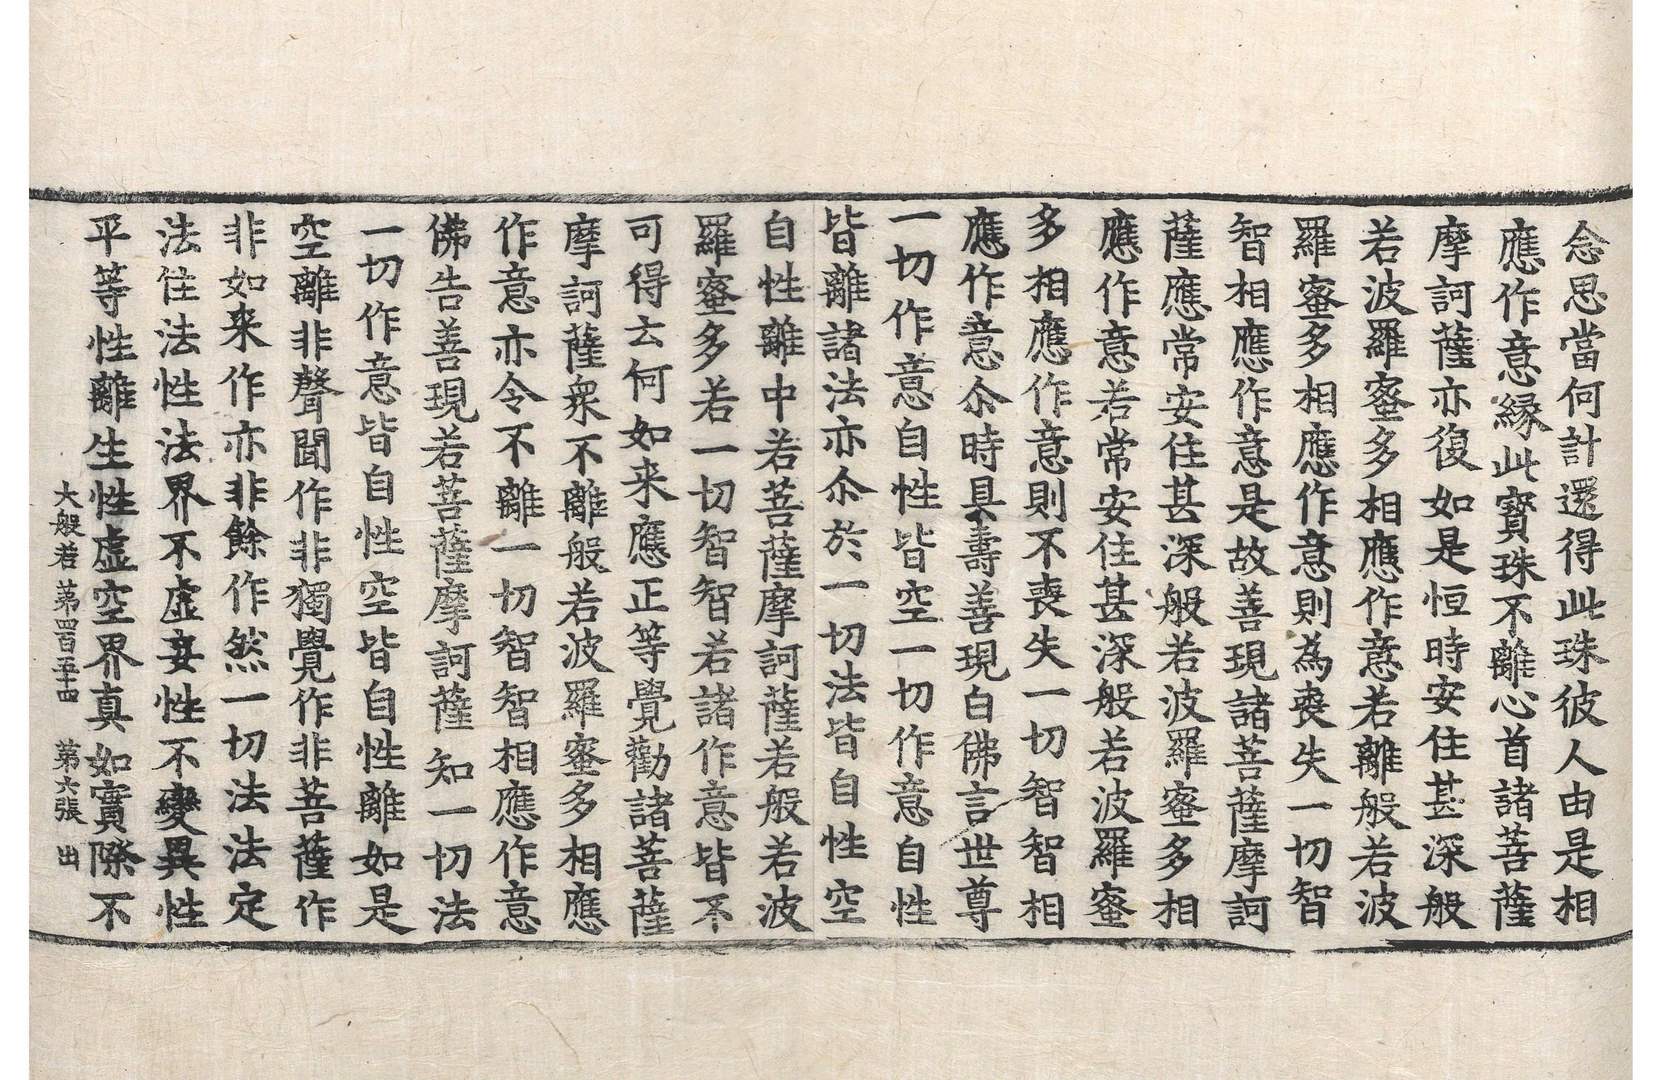 念思當何計還得此珠彼人由是相
應作意緣此寶珠不離心首諸菩薩
摩訶薩亦復如是恒時安住甚深般
若波羅蜜多相應作意若離般若波
羅蜜多相應作意則為喪失一切智
智相應作意是故善現諸菩薩摩訶
薩應常安住甚深般若波羅蜜多相
應作意若常安住甚深般若波羅蜜
多相應作意則不喪失一切智智相
應作意尒時具壽善現白佛言世尊
一切作意自性皆空一切作意自性
皆離諸法亦尒於一切法皆自性空
自性離中若菩薩摩訶薩若般若波
羅蜜多若一切智智若諸作意皆不
可得云何如来應正等覺勸諸菩薩
摩訶薩衆不離般若波羅蜜多相應
作意亦令不離一切智智相應作意
佛告善現若菩薩摩訶薩知一切法
一切作意皆自性空皆自性離如是
空離非聲聞作非獨覺作非菩薩作
非如来作亦非餘作然一切法法定
法住法性法界不虛妄性不變異性
平等性離生性虛空界真如實際不
大般若第四百五十四 第六張 出